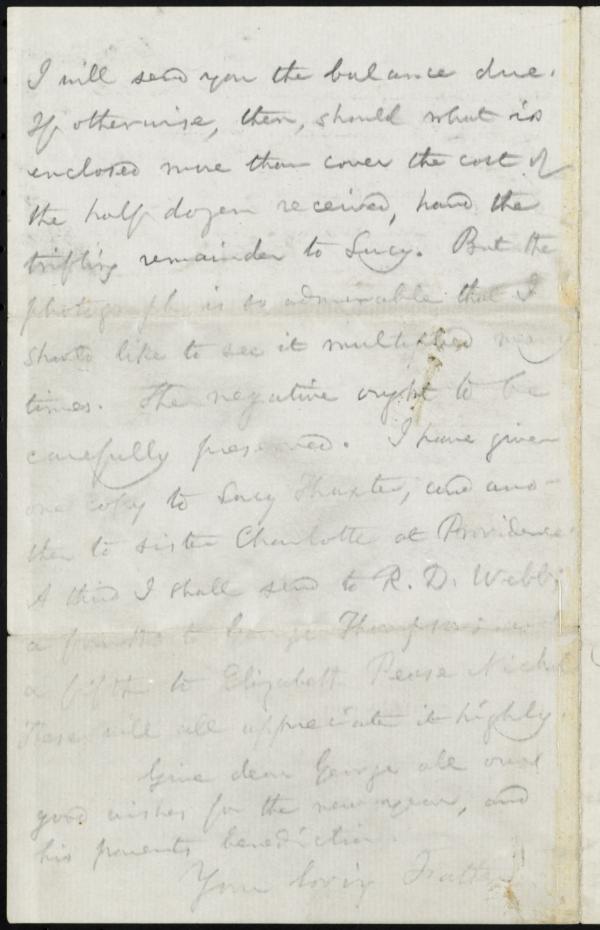 I will send you the balance due.
If otherwise, then, should what is
enclosed more than cover the cost of
the half dozen received, hand the
trifling remainder to Lucy. But the
photograph is so admirable that I
should like to see it multiplied many
times. The negative ought to be
carefully preserved. I have given
one copy to Lucy Thaxter, and ano-
ther to sister Charlotte at Providence.
A third I shall send to R. D. Webb;
a fourth to George Thompson; and
a fifth to Elizabeth Pease Nichol
These will all appreciate it highly.
Give dear George all our
good wishes for the new year, and
his parents benediction.
Your loving Father